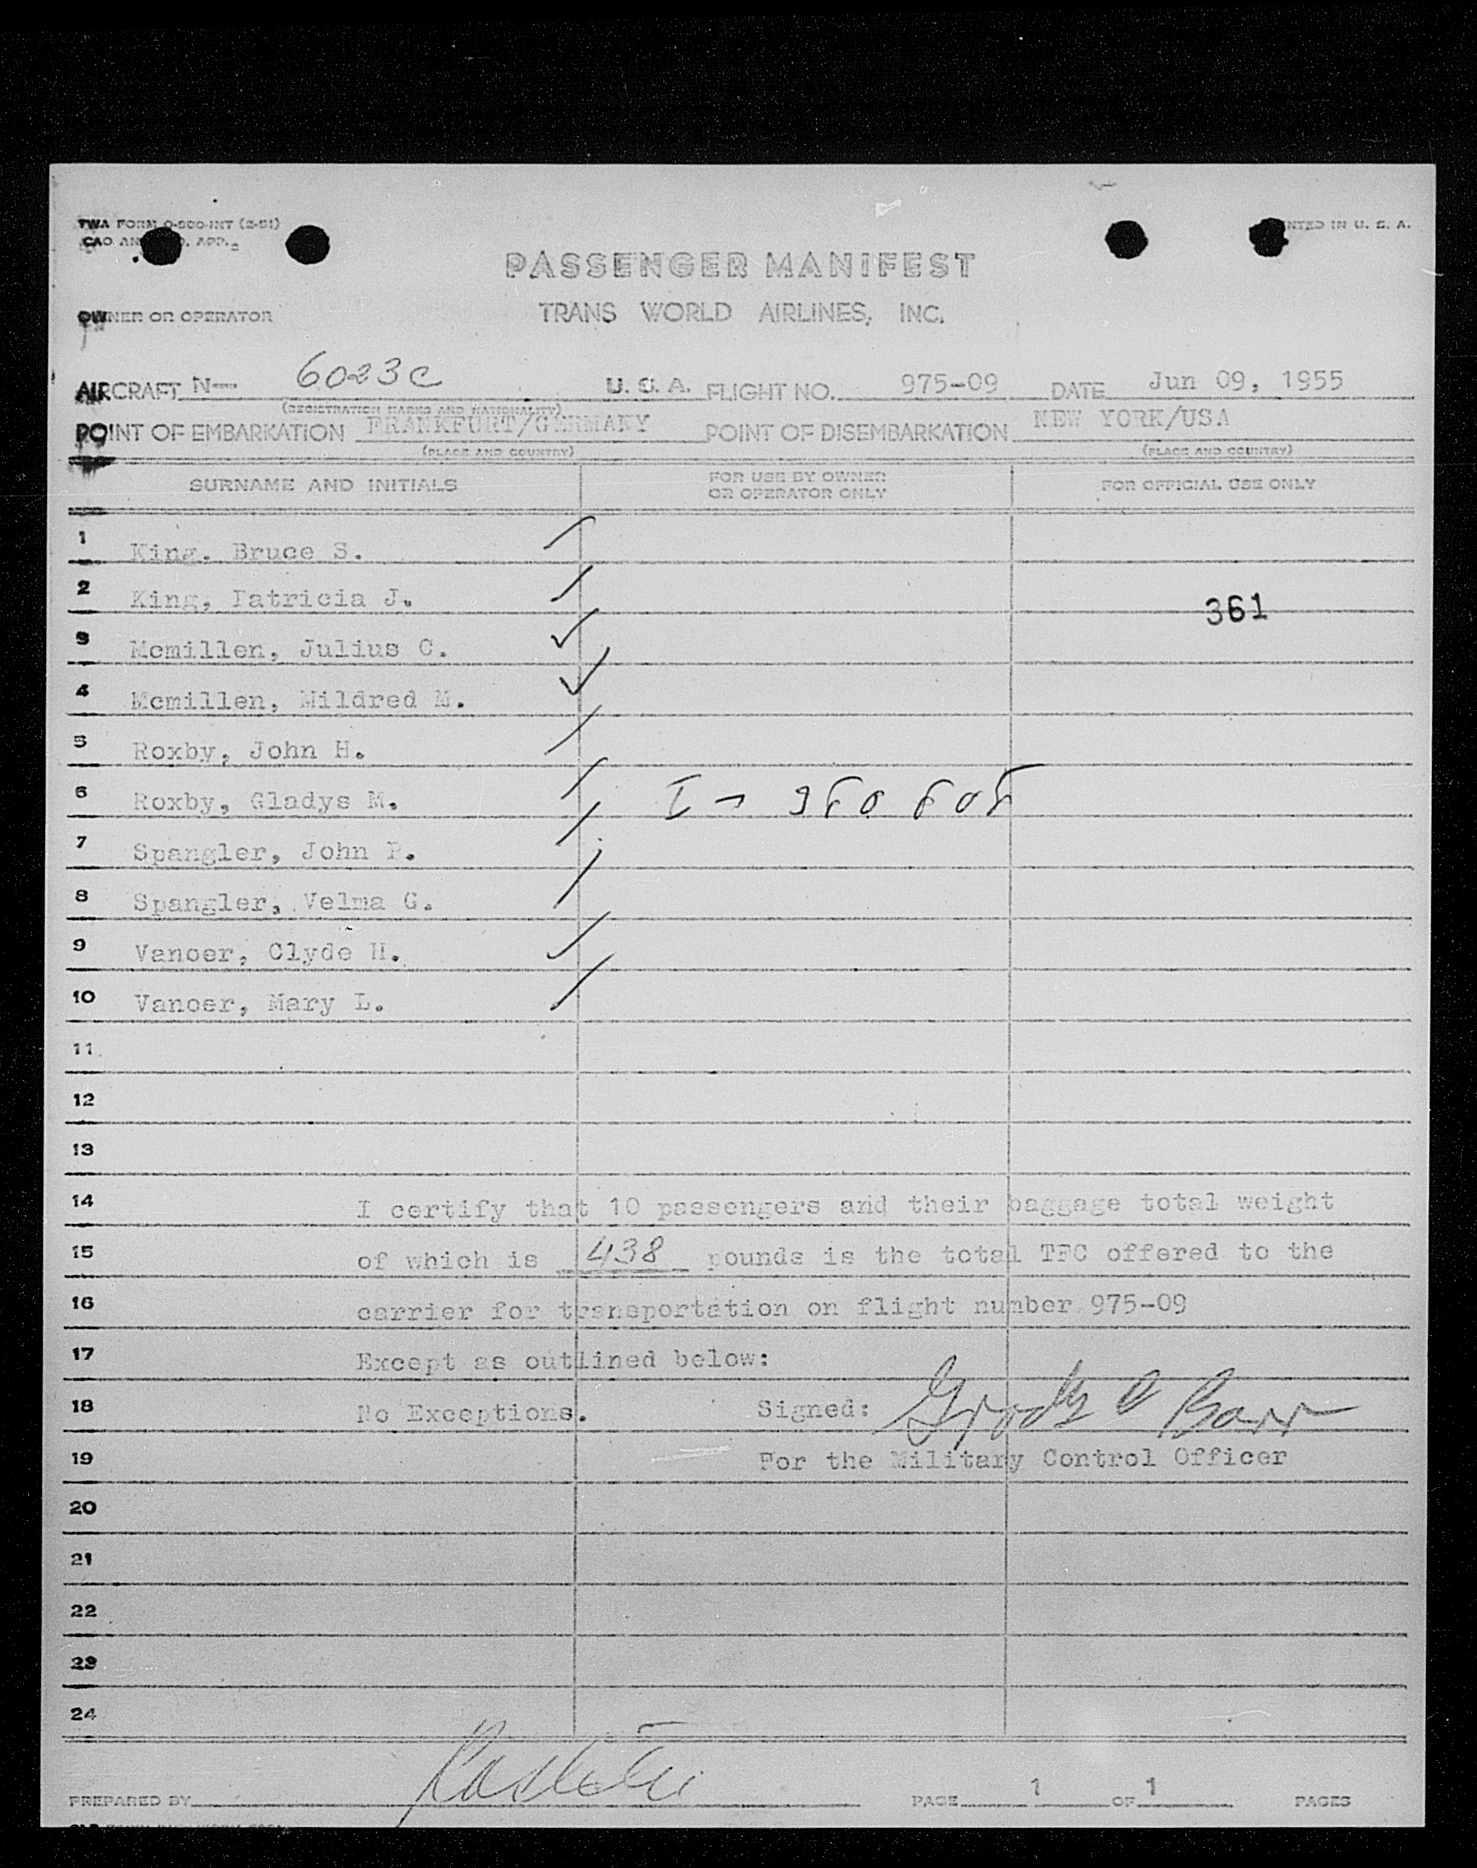 TWA FORM O-500-INT (2-51)
CAO AN APP.
PRINTED IN U. S. A.
PASSENGER MANIFEST
OWNER OR OPERATOR TRANS WORLD AIRLINES, INC.
AIRCRAFT N— 6023C U. S. A. FLIGHT NO. 975-09 DATE Jun 09, 1955
(REGISTRATION MARKS AND NATIONALITY)
POINT OF EMBARKATION FRANKFURT/GERMANY POINT OF DISEMBARKATION NEW YORK/USA
(PLACE AND COUNTRY) (PLACE AND COUNTRY)
SURNAME AND INITIALS FOR USE BY OWNER OR OPERATOR ONLY FOR OFFICIAL USE ONLY
1 King. Bruce S.
2 King, Patricia J. 361
3 Mcmillen, Julius C.
4 Mcmillen, Mildred M.
5 Roxby, John H.
6 Roxby, Gladys M.
7 Spangler, John P.
8 Spangler, Velma G.
9 Vanoer, Clyde H.
10 Vanoer, Mary L.
11
12
13
14 I certify that 10 passengers and their baggage total weight
15 of which is 438 pounds is the total TFC offered to the
16 carrier for transportation on flight number 975-09
17 Except as outlined below:
18 No Exceptions. Signed: Barr
19 For the Military Control Officer
20
21
22
23
24
PREPARED BY PAGE 1 OF 1 PAGES